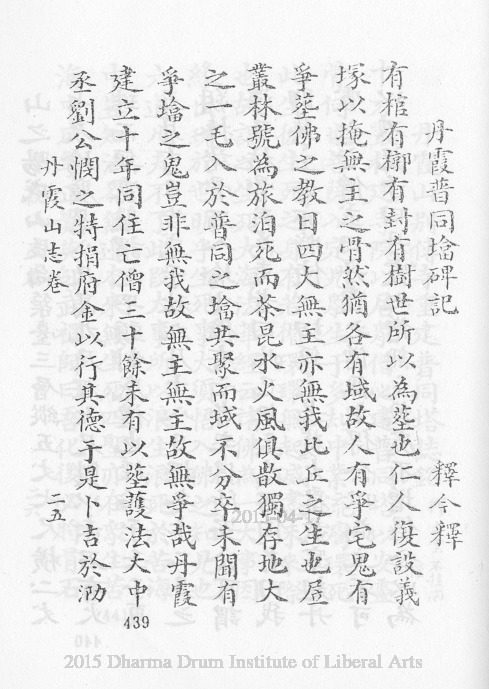 丹霞普同墖碑記　釋今釋
有棺有槨有封有樹世所以為塟也仁人復設義
塚以掩無主之骨然猶各有域故人有爭宅鬼有
爭塟佛之教曰四大無主亦無我比丘之生也屋
叢林號為旅泊死而茶毘水火風俱散獨存地大
之一毛入於普同之墖共聚而域不分卒未聞有
爭墖之鬼豈非無我故無主無主故無爭哉丹霞
建立十年同住亡僧三十餘未有以塟護法大中
丞劉公憫之特捐府金以行其德于是卜吉於泐
丹霞山志卷　二五
439
2015-04-17
2015 Dharma Drum Institute of Liberal Arts